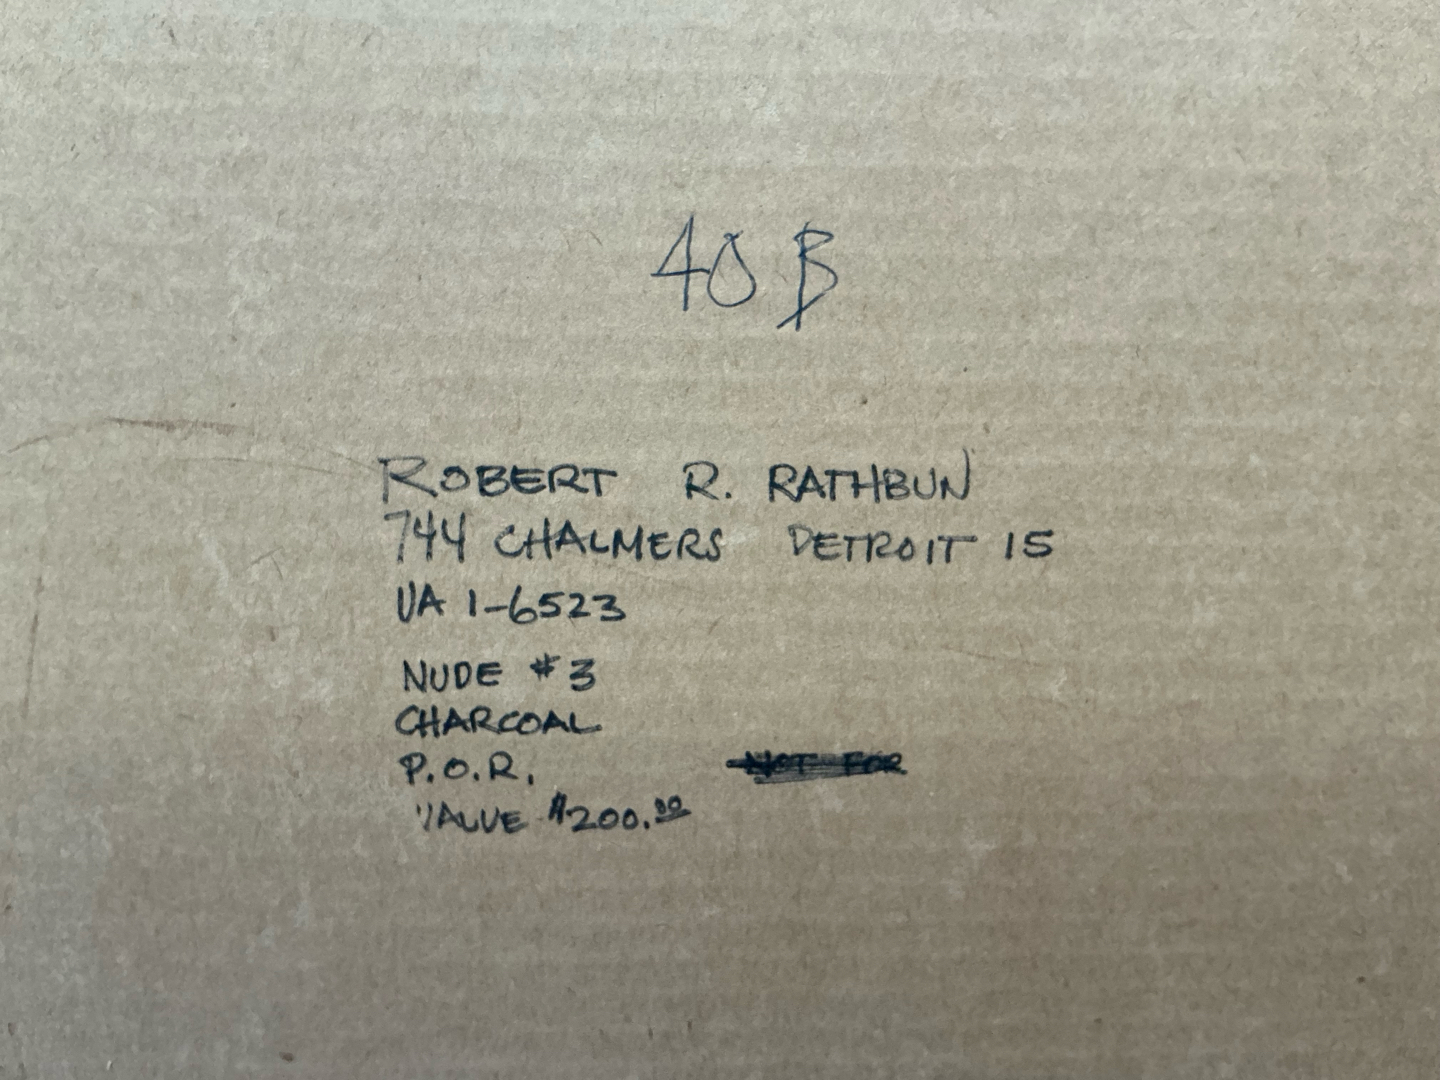 40 B
ROBERT R. RATHBUN
744 CHALMERS DETROIT 15
VA 1-6523
NUDE #3
CHARCOAL
P.O.R. NOT FOR
VALUE $200.00